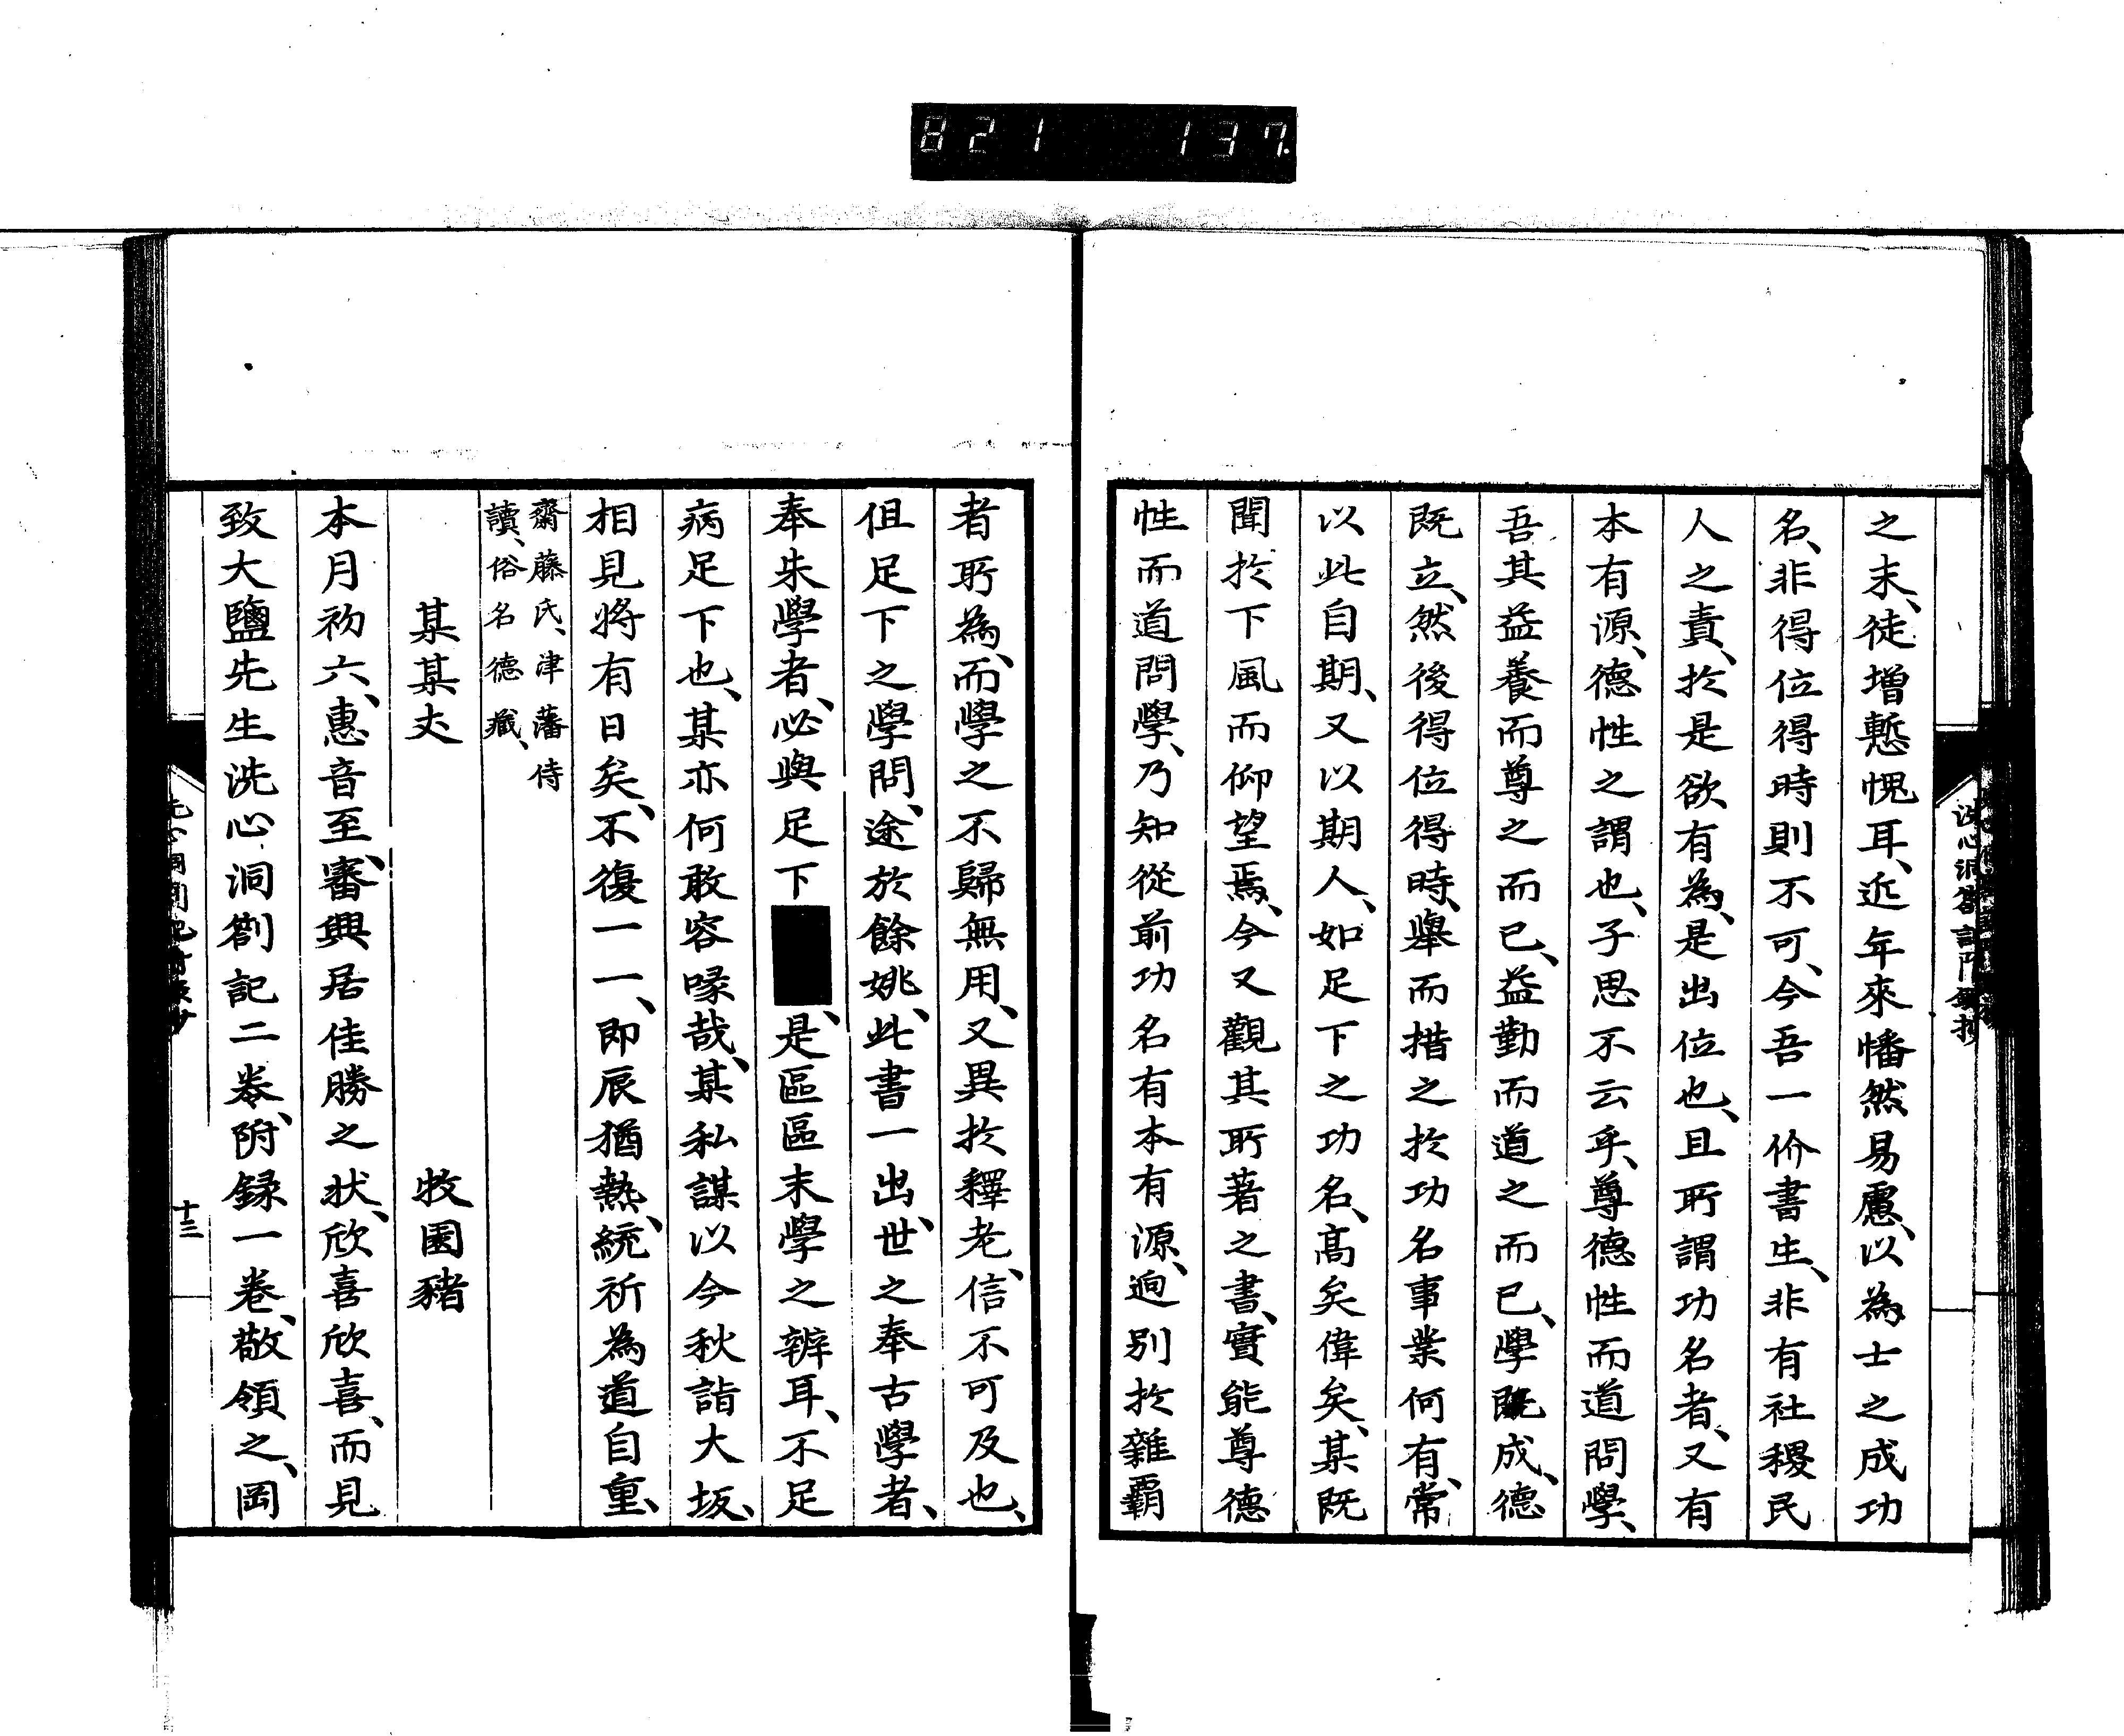 821 137.
之末、徒増慙愧耳、近年來幡然易慮、以為士之成功
名、非得位得時則不可、今吾一价書生、非有社稷民
人之責、於是欲有為、是出位也、且所謂功名者、又有
本有源、德性之謂也、子思不云乎、尊德性而道問學、
吾其益養而尊之而已、益勤而道之而已、學既成、德
既立、然後得位得時、舉而措之於功名事業何有、常
以此自期、又以期人、如足下之功名、高矣偉矣、某既
聞於下風而仰望焉、今又觀其所著之書、實能尊德
性而道問學、乃知從前功名有本有源、逈別於雜霸
者所為、而學之不歸無用、又異於釋老、信不可及也、
但足下之學問、途於餘姚、此書一出、世之奉古學者、
奉朱學者、必與足下、是區區末學之辨耳、不足
病足下也、某亦何敢容喙哉、某私謀以今秋詣大坂、
相見將有日矣、不復一一、即辰猶熱、統祈為道自重、
齋藤氏、津藩侍
讀、俗名德藏、
某某丈 牧園豬
本月初六、惠音至、審興居佳勝之狀、欣喜欣喜、而見
致大鹽先生洗心洞劄記二卷、附録一卷、敬領之、岡
十三